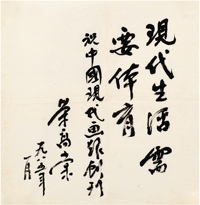 現代生活需
要体育
祝中國現代画報創刊
荣高棠
一九八五年
一月